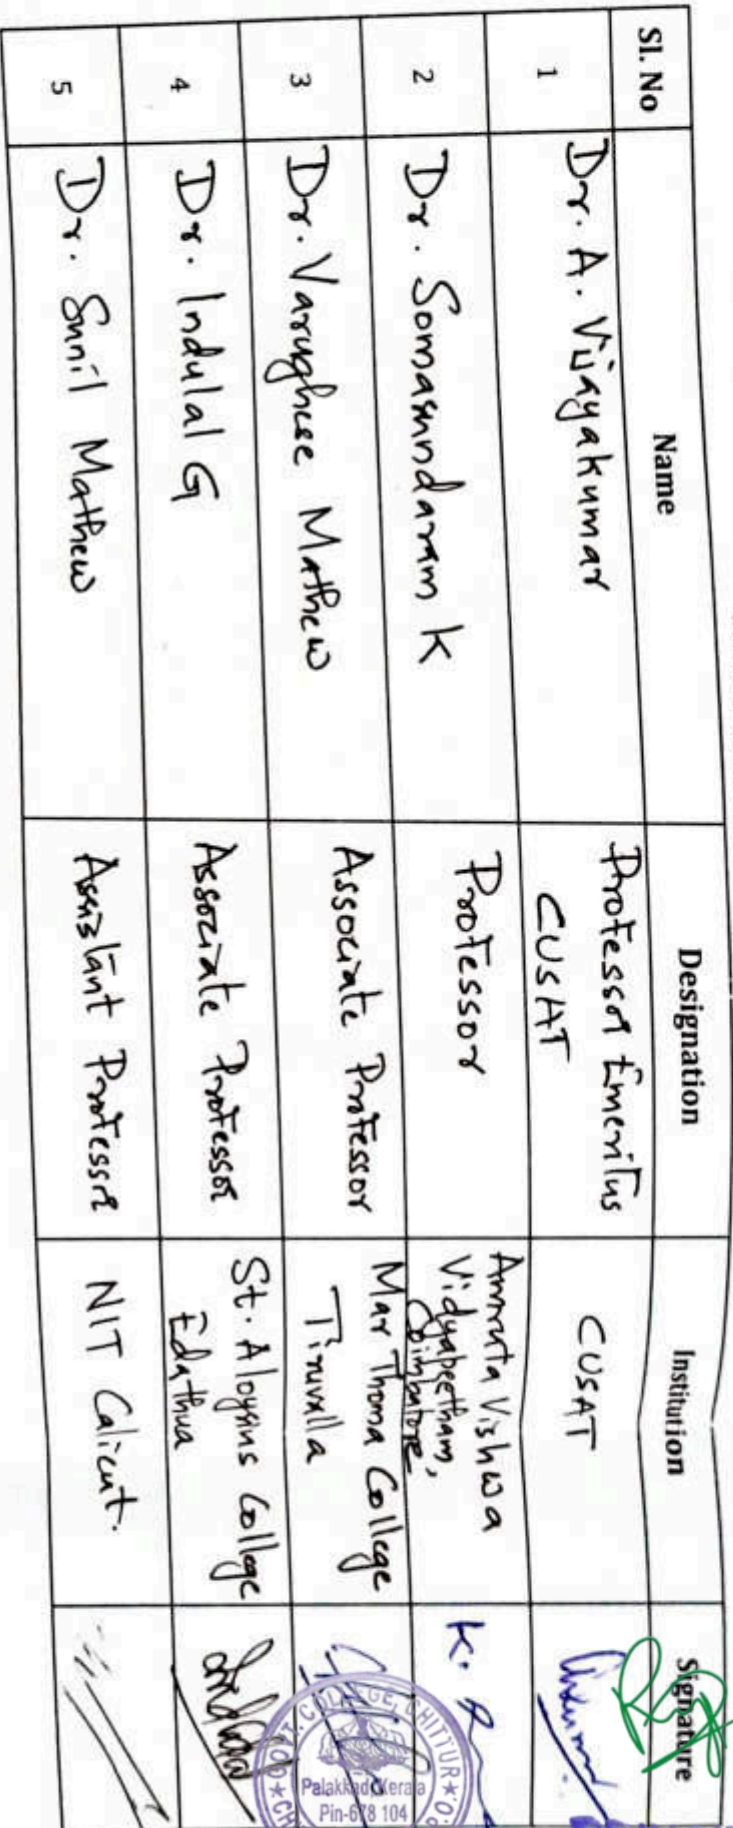 Sl. No Name Designation Institution Signature
1 Dr. A. Vijayakumar Professor Emeritus CUSAT
CUSAT
2 Dr. Somasundaram K Professor Amruta Vishwa
Vidyapeetham,
Coimbatore
3 Dr. Varughese Mathew Associate Professor Mar Thoma College
Tiruvalla
4 Dr. Indulal G Associate Professor St. Aloysius College
Edathua
5 Dr. Sunil Mathew Assistant Professor NIT Calicut.
K.
GOVT. COLLEGE, CHITTUR
Palakkad, Kerala
Pin-678 104